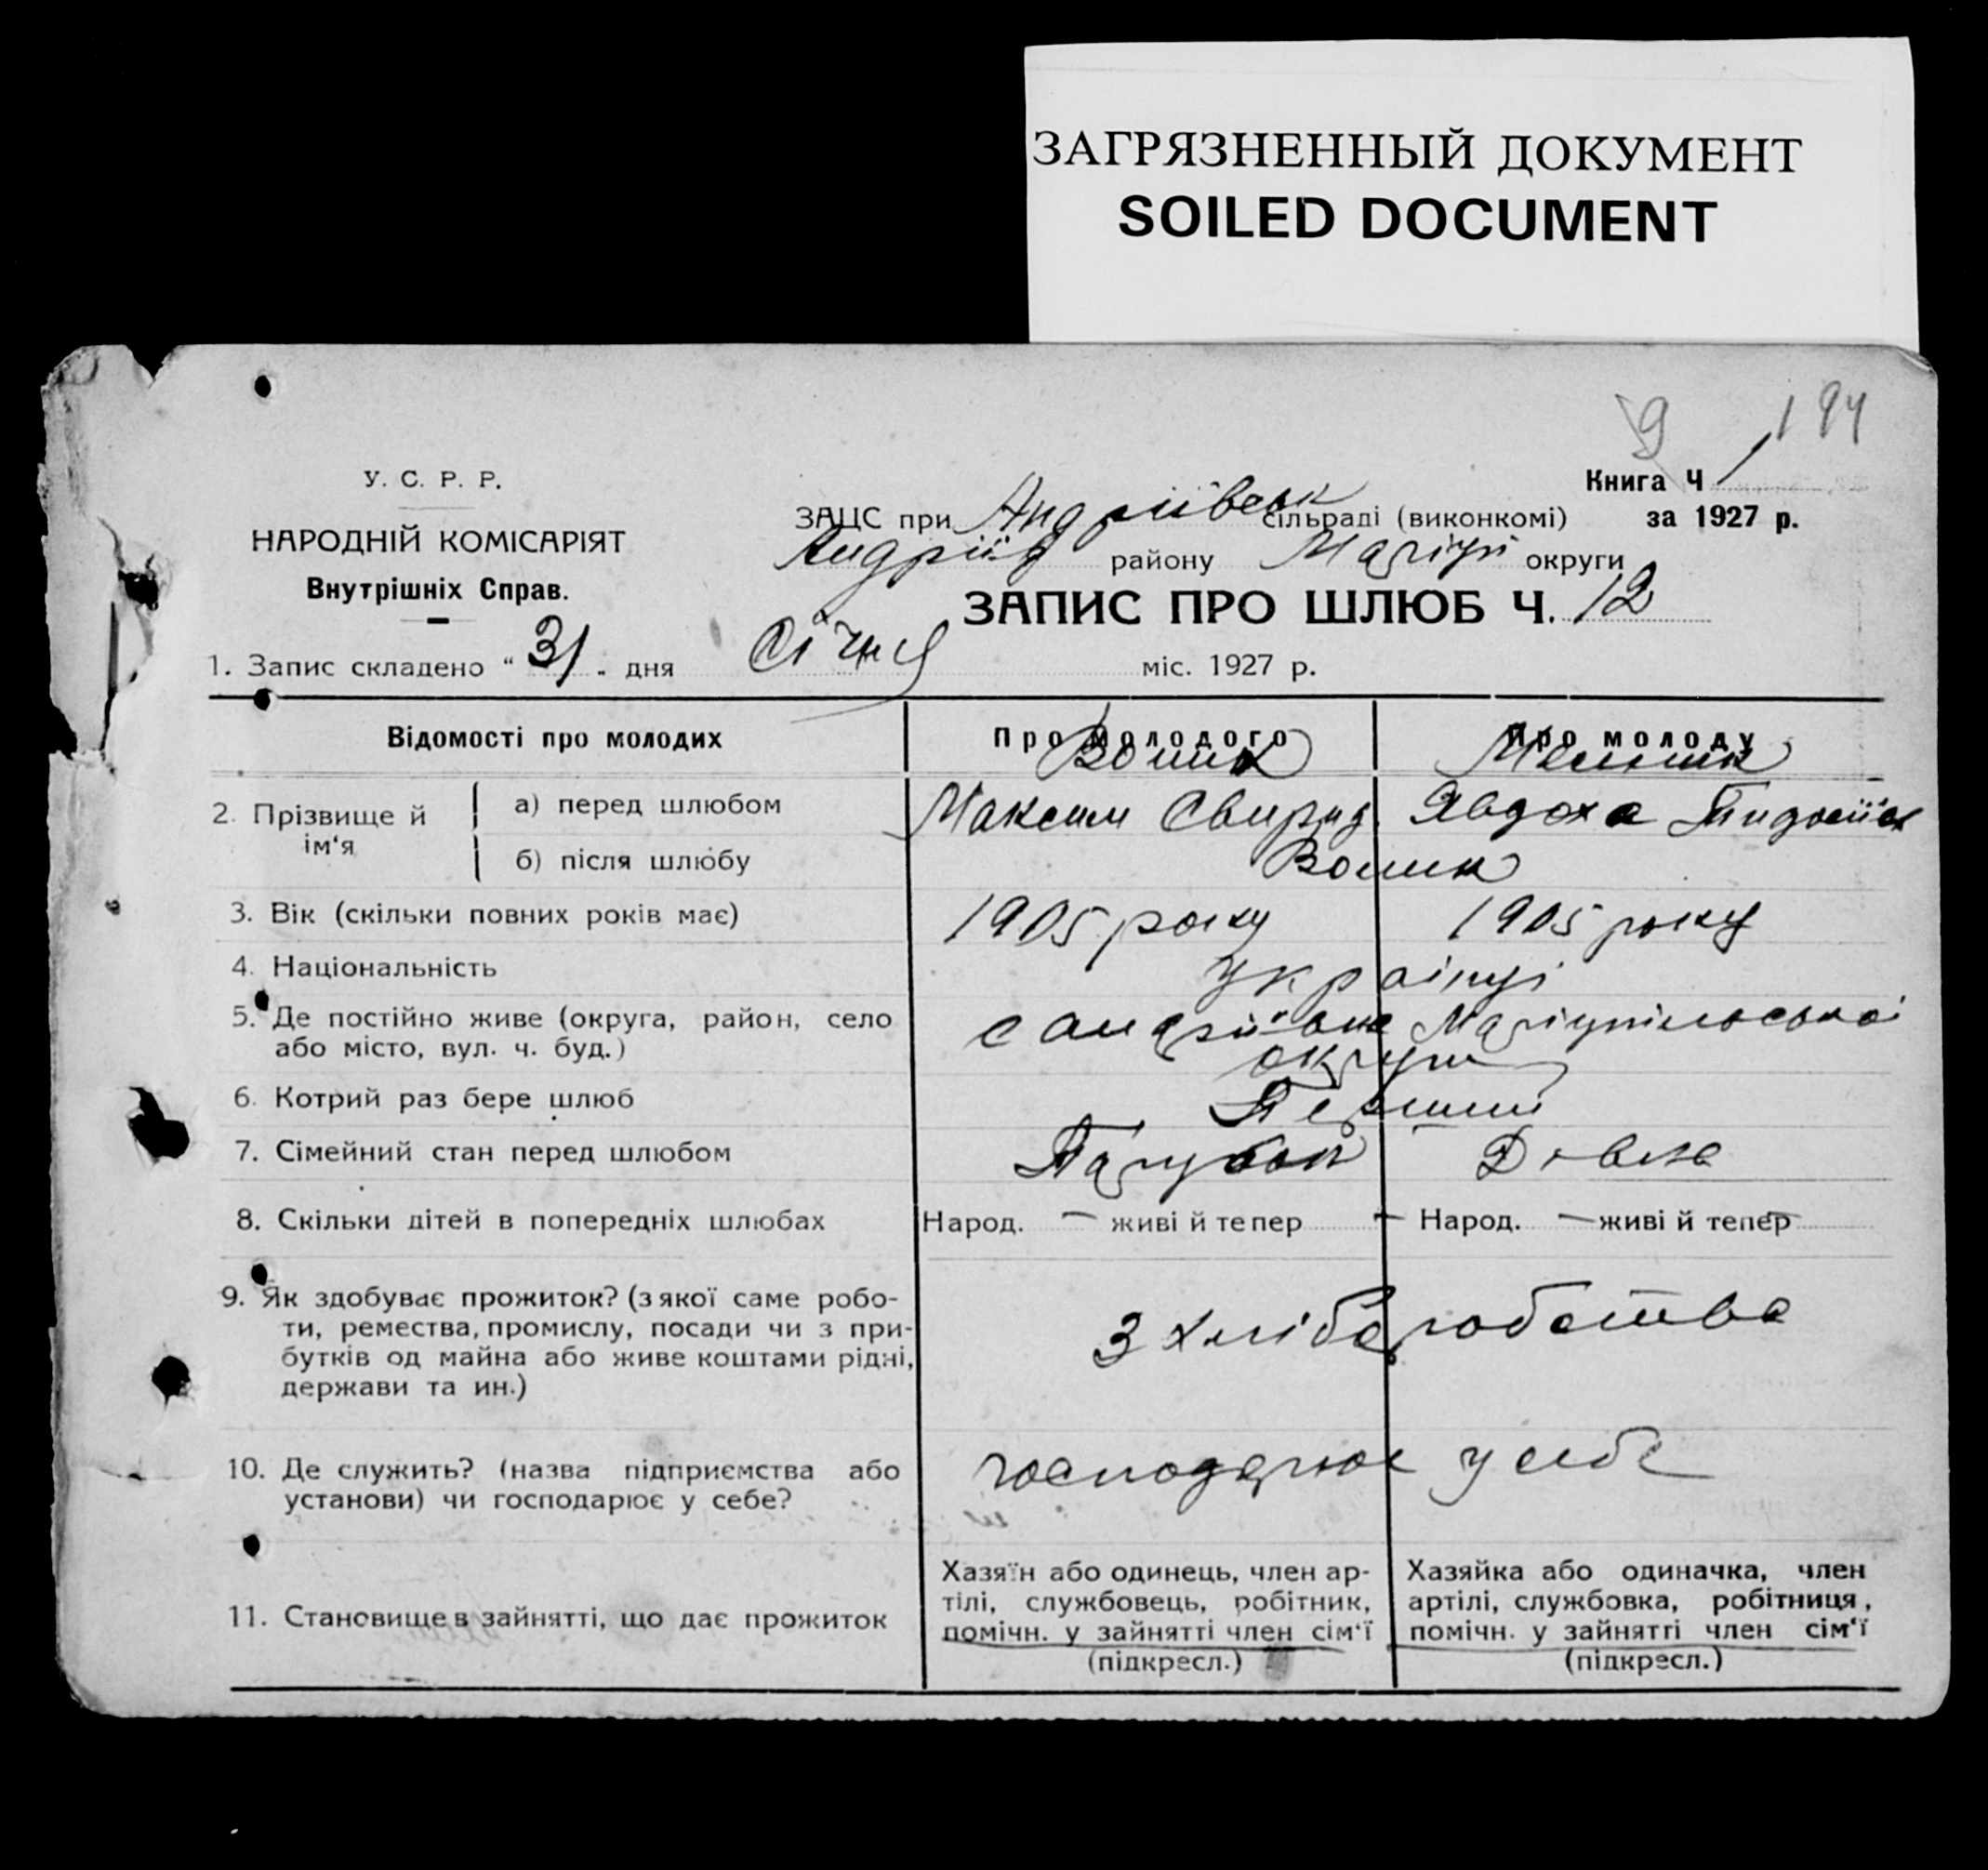 ЗАГРЯЗНЕННЫЙ ДОКУМЕНТ
SOILED DOCUMENT
9 194
У. С. Р. Р.
НАРОДНІЙ КОМІСАРІЯТ
Внутрішніх Справ.
Книга Ч 1
за 1927 р.
ЗАЦС при Андріївськ сільраді (виконкомі)
Андріїв району Маріуп округи
ЗАПИС ПРО ШЛЮБ Ч. 12
1. Запис складено “ 31 - дня Січня міс. 1927 р.
Відомості про молодих
Про молодого
Про молоду
2. Прізвище й ім'я
а) перед шлюбом
Максим Свирид.
Явдоха
б) після шлюбу
3. Вік (скільки повних років має)
1905 року
1905 року
4. Національність
українці
5. Де постійно живе (округа, район, село
або місто, вул. ч. буд.)
с Андріївка Маріупільської
округи
6. Котрий раз бере шлюб
Перший
7. Сімейний стан перед шлюбом
Парубок
Дівка
8. Скільки дітей в попередніх шлюбах
Народ. — живі й тепер —
Народ. — живі й тепер —
9. Як здобуває прожиток? (з якої саме робо-
ти, ремества, промислу, посади чи з при-
бутків од майна або живе коштами рідні,
держави та ин.)
З хліборобства
10. Де служить? (назва підприємства або
установи) чи господарює у себе?
господарює у себе
11. Становище в зайнятті, що дає прожиток
Хазяїн або одинець, член ар-
тілі, службовець, робітник,
помічн. у зайнятті член сім'ї
(підкресл.)
Хазяйка або одиначка, член
артілі, службовка, робітниця,
помічн. у зайнятті член сім'ї
(підкресл.)